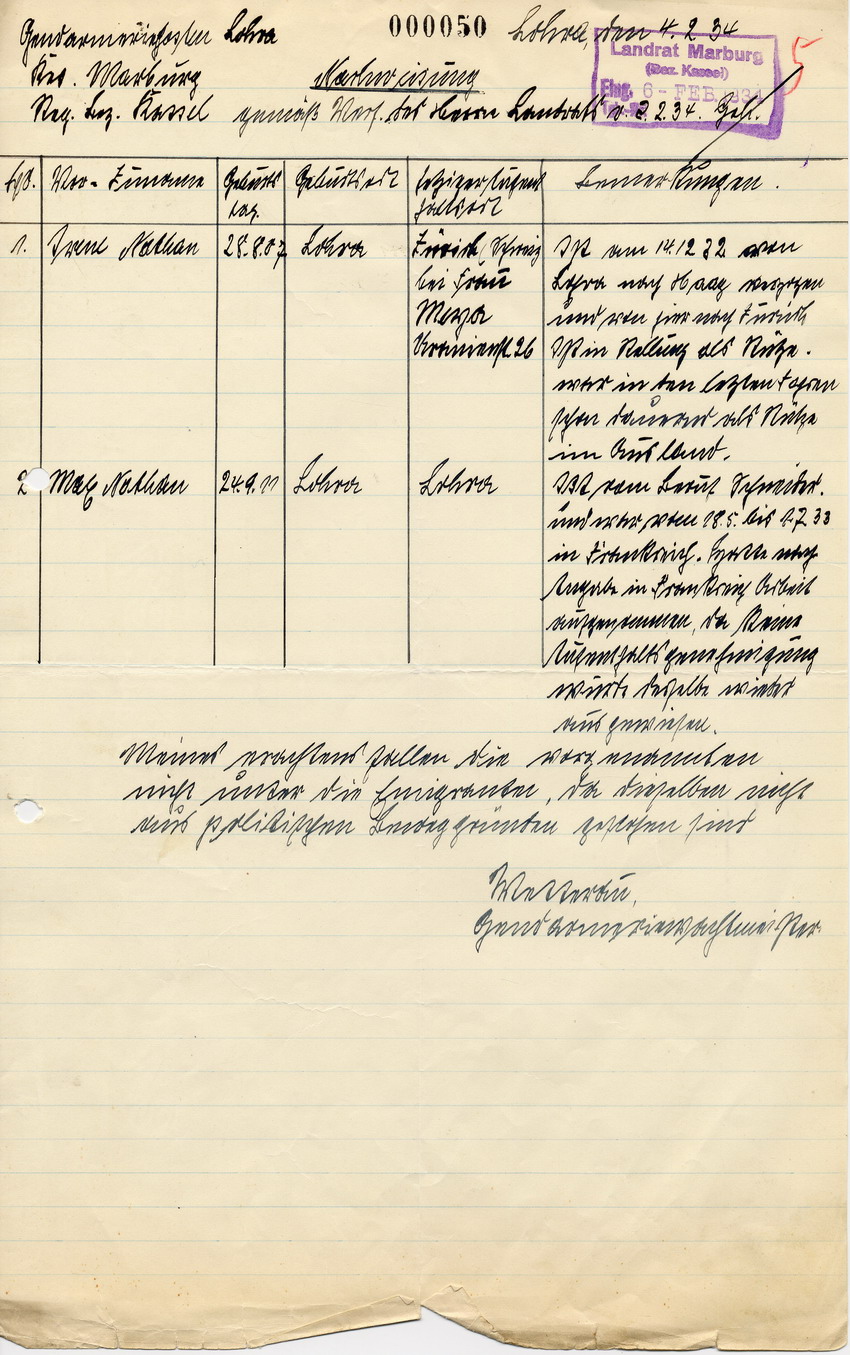 Gendarmerieposten Lohra
000050
Lohra, den 4.2.34
Krs. Marburg
Nachweisung
Reg. Bez. Kassel gemäß Verf. des Herrn Landrats v. 2.2.34. Geh.
Landrat Marburg
(Bez. Kassel)
Eing. 6 - FEB. 1934
5
Vor- Zuname
Geburts
tag.
Geburtsort
jetziger Aufent
haltsort
Bemerkungen.
1. Irene Nathan
28.8.07
Lohra
Zürich (Schweiz
bei Frau
26
Ist am 14.12.32 von
Lohra nach Haag verzogen
und von hier nach Zürich
Ist in Stellung als Stütze.
war in den letzten Jahren
schon dauernd als Stütze
im Ausland.
2 Max Nathan
24.9.11
Lohra
Lohra
Ist vom Beruf Schneider.
und war vom 18.5. bis 1.7.33
in Frankreich. Hatte nach
Angabe in Frankreich Arbeit
aufgenommen, da keine
Aufenthaltsgenehmigung
wurde derselbe wieder
ausgewiesen.
Meines erachtens fallen die vorgenannten
nicht unter die Emigranten, da dieselben nicht
aus politischen Beweggründen geflohen sind
Wetterau,
Gendarmeriewachtmeister.